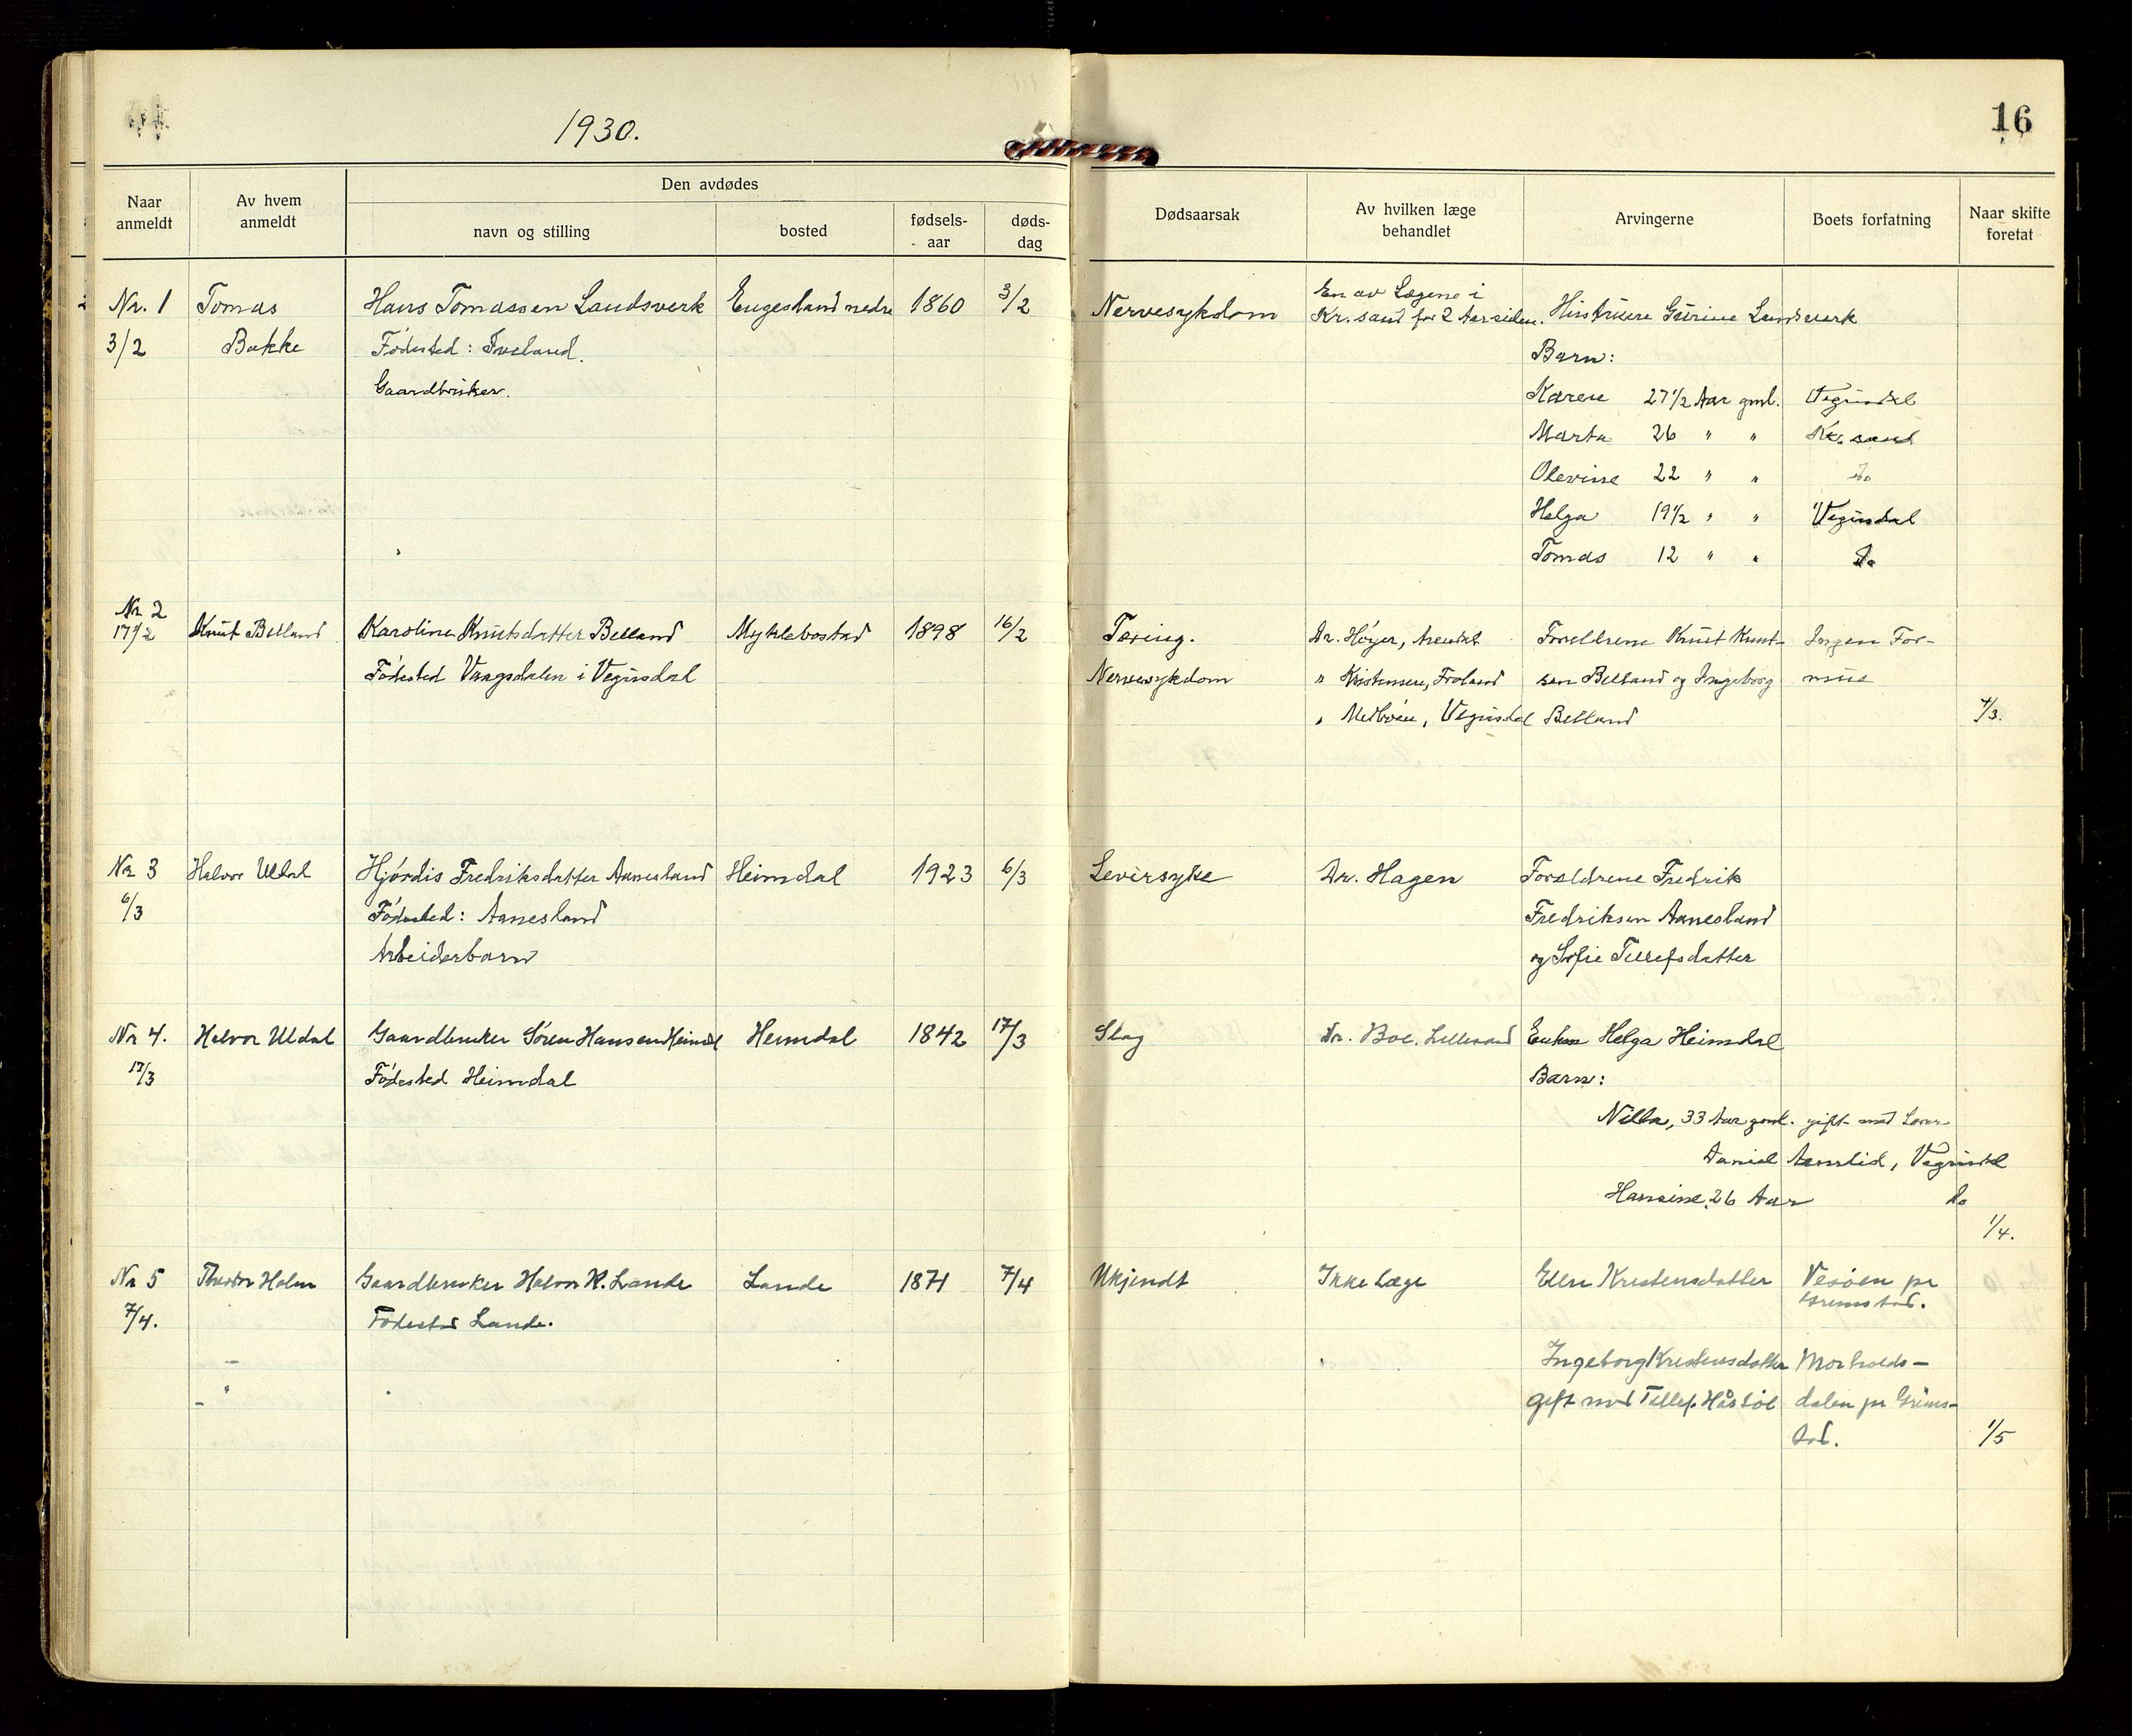 1930.
16
Naar anmeldt
Av hvem anmeldt
Den avdødes
navn og stilling
bosted
fødsels-aar
døds-dag
Dødsaarsak
Av hvilken læge behandlet
Arvingerne
Boets forfatning
Naar skifte foretat
Nr. 1 Tomas Hans Tomassen Landsverk Engesland nedre 1860 3/2 Nervesykdom En av Lægene i
Kr. sand for 2 Aar siden. Hustruen Gurine Landsverk
3/2 Bakke Fødested: Iveland. Barn:
Gaardbruker. Karen 27 1/2 Aar gml. Vegusdal
Marta 26 " " Kr. sand
Olevine 22 " " do
Helga 19 1/2 " " Vegusdal
Tomas 12 " " do
Nr 2
17/2 Knut Belland Karoline Knutsdatter Belland Myklebostad 1898 16/2 Tæring. Dr. Høyer, Arendal Forældrene Knut Knut- Ingen For-
Fødested Vaagsdalen i Vegusdal Nervesykdom " Kristensen, Froland sen Belland og Ingeborg mue
" Medbøen, Vegusdal Belland 1/3.
Nr 3 Halvor Uldal Hjørdis Fredriksdatter Aanesland Heimdal 1923 6/3 Leversyke Dr. Hagen Forældrene Fredrik
6/3 Fødested: Aanesland Fredriksen Aanesland
Arbeiderbarn og Sofie Tellefsdatter
Nr 4. Halvor Uldal Gaardbruker Søren Hansen Heimdal Heimdal 1842 17/3 Slag Dr. Boe. Lillesand Enken Helga Heimdal
17/3 Fødested Heimdal Barn:
33 Aar gml. gift med Lærer
Daniel Vegusdal
Hansine, 26 Aar do
1/4.
Nr 5 Theodor Holm Gaardbruker Halvor K. Lande Lande 1871 7/4 Ukjendt Ikke Læge Ellen Kristensdatter Vesøen pr
Grimstad.
7/4. Fødested Lande.
Ingeborg Kristensdatter Morholds-
gift med Tellef Håsløl dalen pr Grims-
tad. 1/5